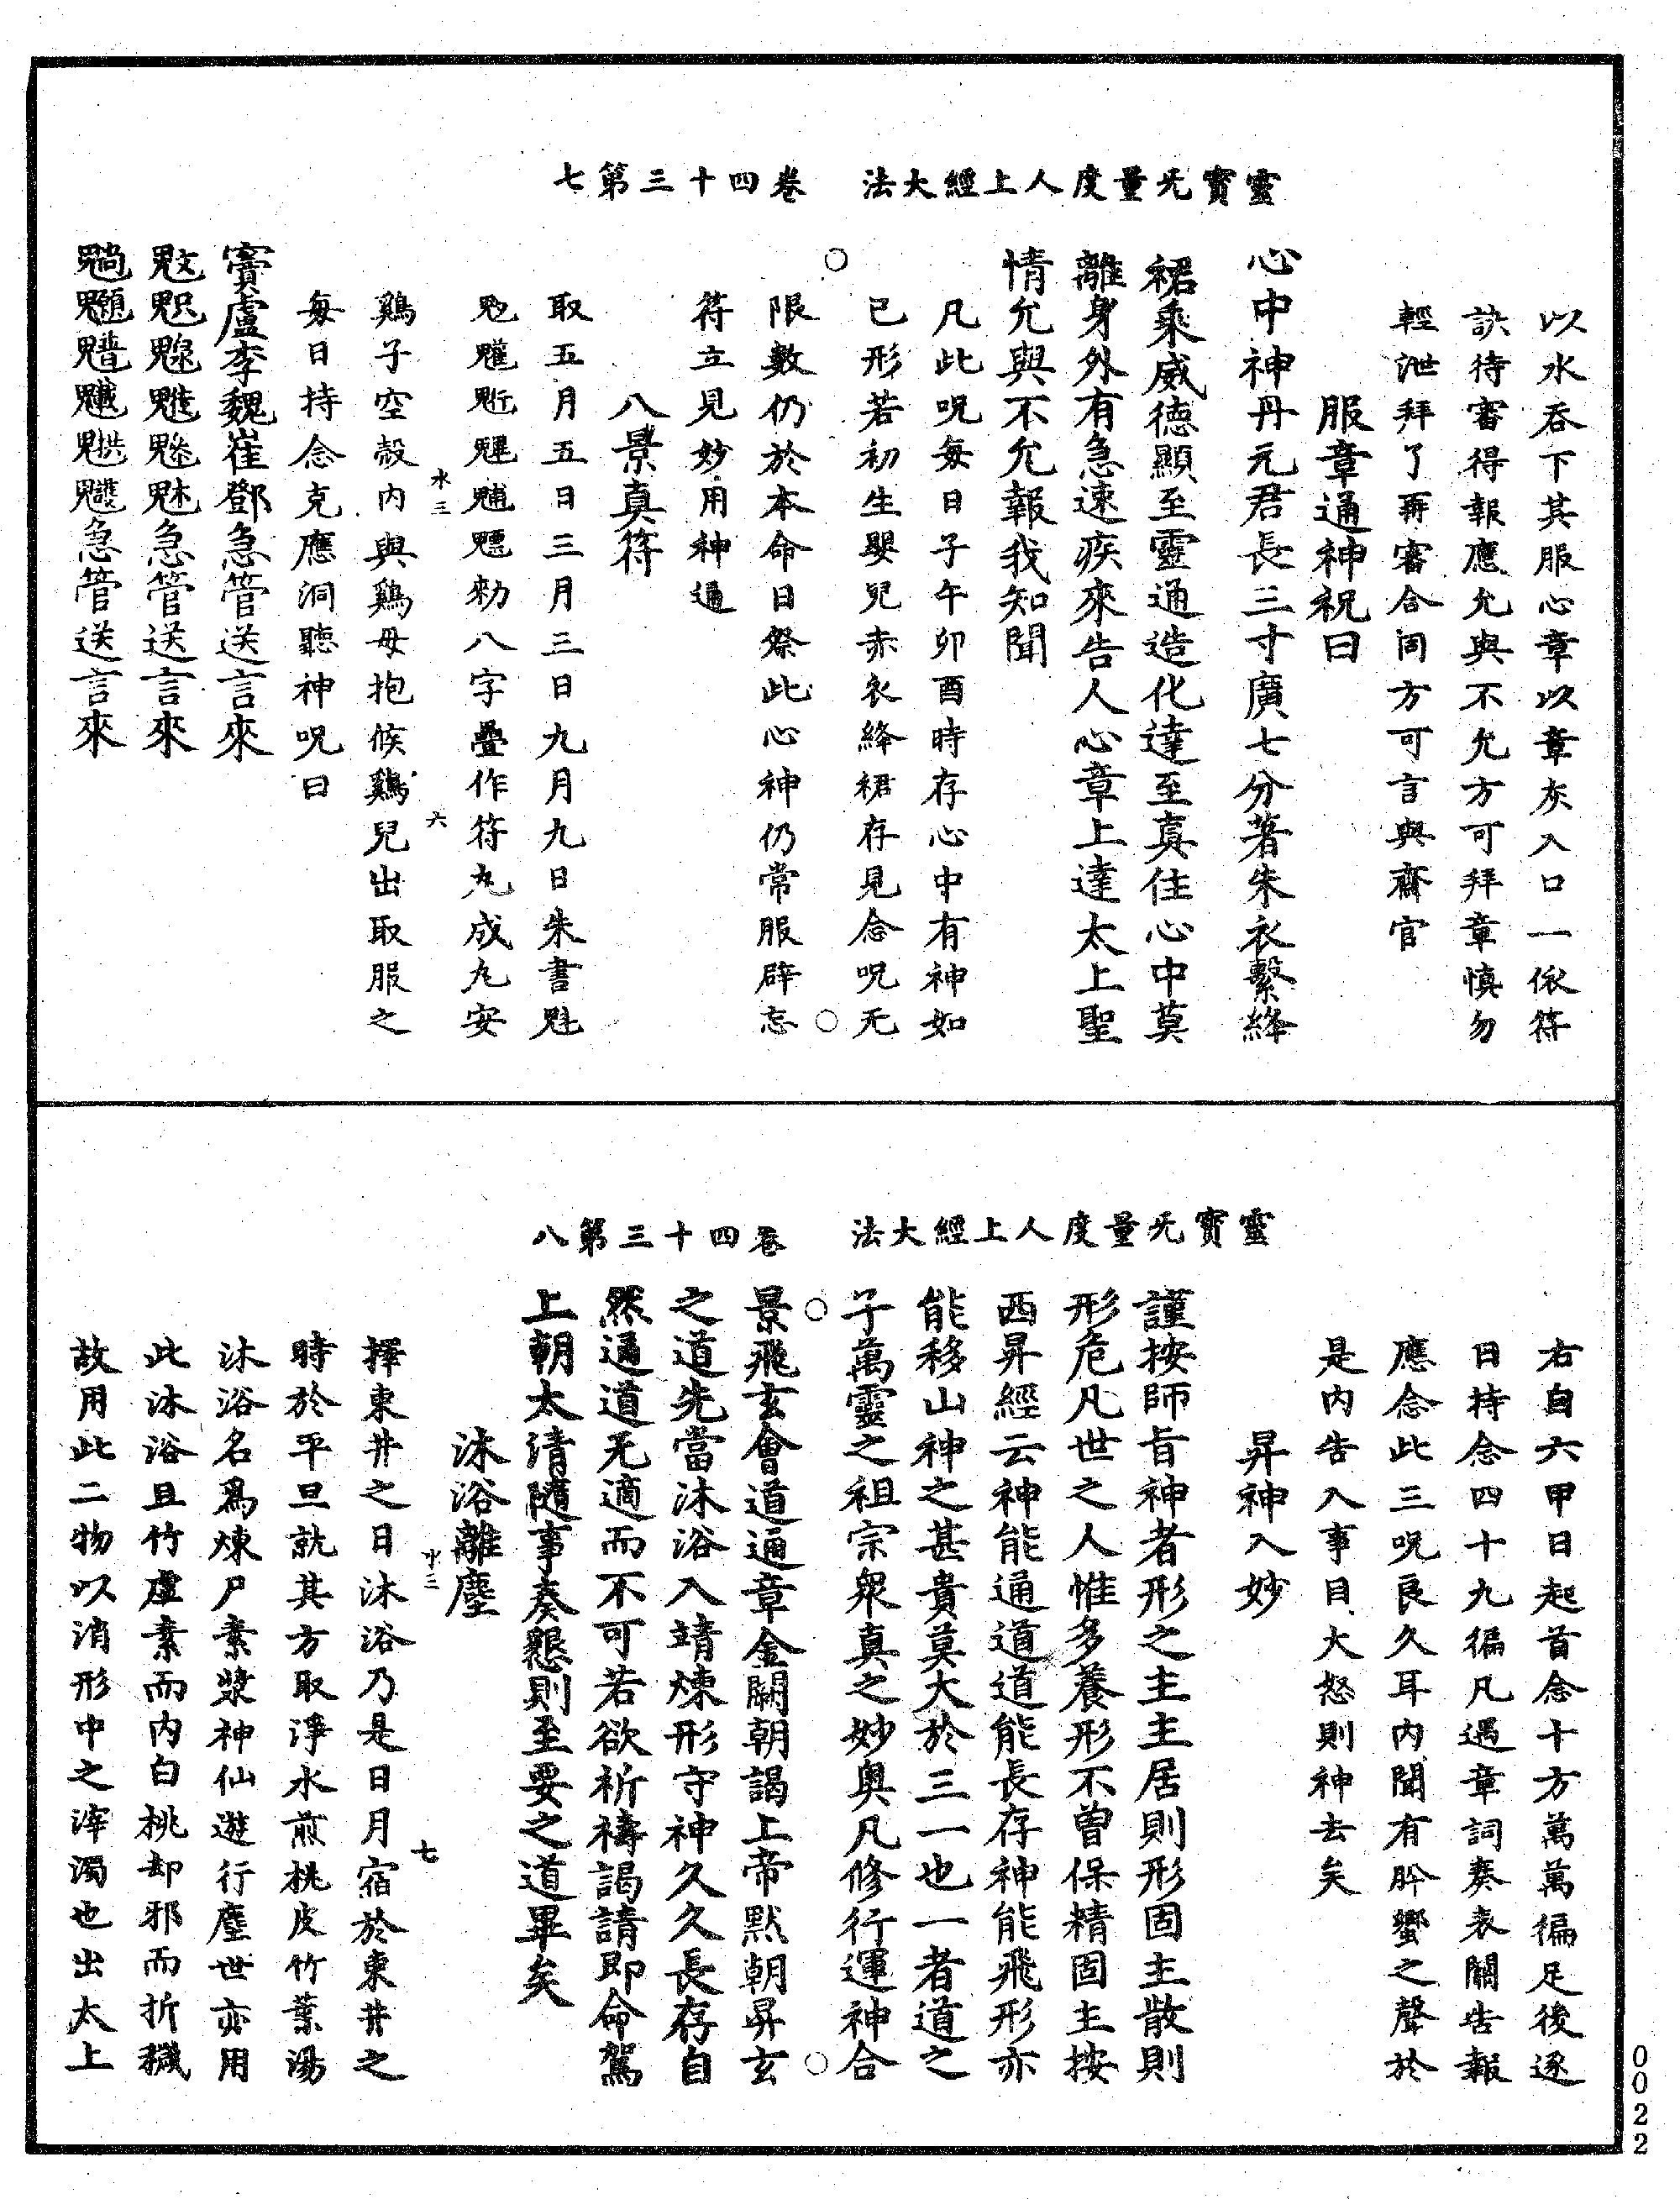 靈寶无量度人上經大法　卷四十三第七
以水吞下其服心章以章灰入口一依符
訣待審得報應允與不允方可拜章慎勿
輕泄拜了再審合同方可言與齋官
服章通神祝曰
心中神丹元君長三寸廣七分著朱衣繫絳
裙乘威德顯至靈通造化達至真住心中莫
離身外有急速疾來告人心章上達太上聖
情允與不允報我知聞
凡此呪每日子午卯酉時存心中有神如
已形若初生嬰兒赤衣絳裙存見念呪无
限數仍於本命日祭此心神仍常服辟忘
符立見妙用神通
八景真符
取五月五日三月三日九月九日朱書魁
勑八字疊作符丸成九安
鷄子空殼内與鷄母抱候鷄兒出取服之
每日持念克應洞聽神呪曰
竇盧李魏崔鄧急管送言來
急管送言來
急管送言來
水三
六
靈寶无量度人上經大法　卷四十三第八
右自六甲日起首念十方萬萬徧足後逐
日持念四十九徧凡遇章詞奏表關告報
應念此三呪良久耳内聞有肸蠁之聲於
是内告入事目大怒則神去矣
昇神入妙
謹按師旨神者形之主主居則形固主散則
形危凡世之人惟多養形不曾保精固主按
西昇經云神能通道道能長存神能飛形亦
能移山神之甚貴莫大於三一也一者道之
子萬靈之祖宗衆真之妙奥凡修行運神合
景飛玄會道通章金闕朝謁上帝默朝昇玄
之道先當沐浴入靖煉形守神久久長存自
然通道无適而不可若欲祈禱謁請即命駕
上朝太清隨事奏懇則至要之道畢矣
沐浴離塵
擇東井之日沐浴乃是日月宿於東井之
時於平旦就其方取淨水煎桃皮竹葉湯
沐浴名爲煉尸素漿神仙遊行塵世亦用
此沐浴且竹虛素而内白桃却邪而折穢
故用此二物以消形中之滓濁也出太上
十三
七
0022